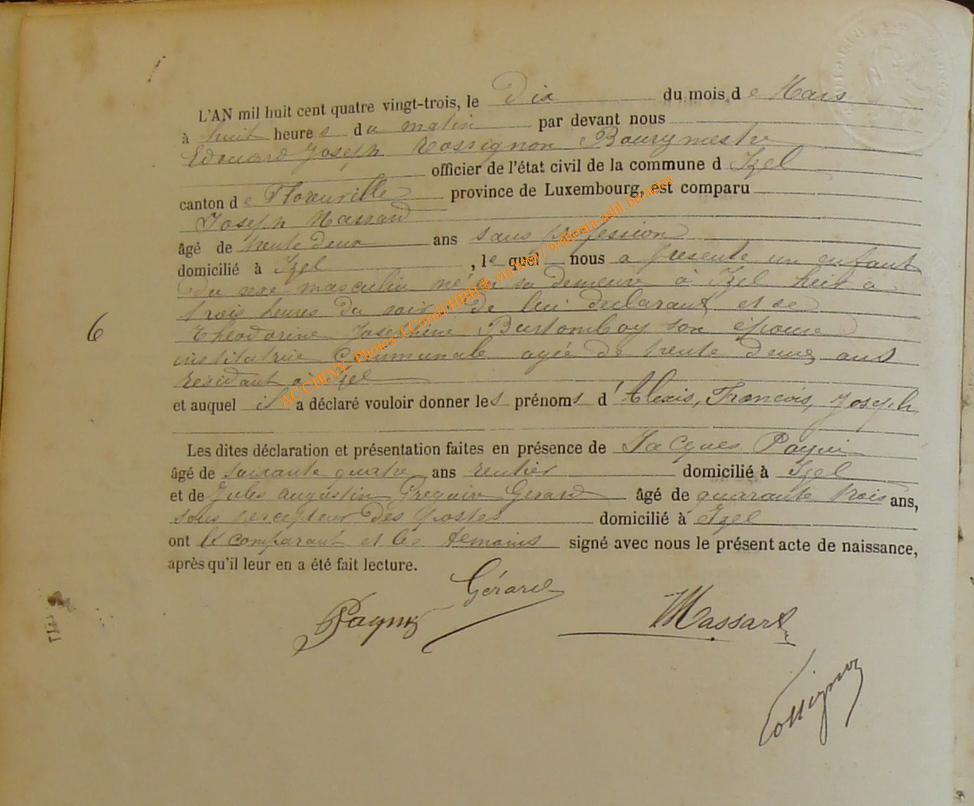 L'AN mil huit cent quatre vingt-trois, le Dix du mois de Mars
à huit heures du matin par devant nous
Edouard Joseph Rossignon Bourgmestre
officier de l'état civil de la commune d Izel
canton de Florenville province de Luxembourg, est comparu
Joseph Massard
âgé de trente deux ans sans profession
domicilié à Izel, lequel nous a présenté un enfant
du sexe masculin né en sa demeure à Izel hier à
trois heures du soir, de lui déclarant et de
Théodorine Josephine son épouse
institutrice Communale agée de trente deux ans
résidant à Izel
6
et auquel il a déclaré vouloir donner les prénoms d'Alexis, François, Joseph
Les dites déclaration et présentation faites en présence de Jacques
âgé de soixante quatre ans rentier domicilié à Izel
et de Jules Augustin Gérard âgé de quarante trois ans,
sous percepteur des postes domicilié à Izel
ont le comparant et les témoins signé avec nous le présent acte de naissance,
après qu'il leur en a été fait lecture.
Gérard
Massart
Rossignon